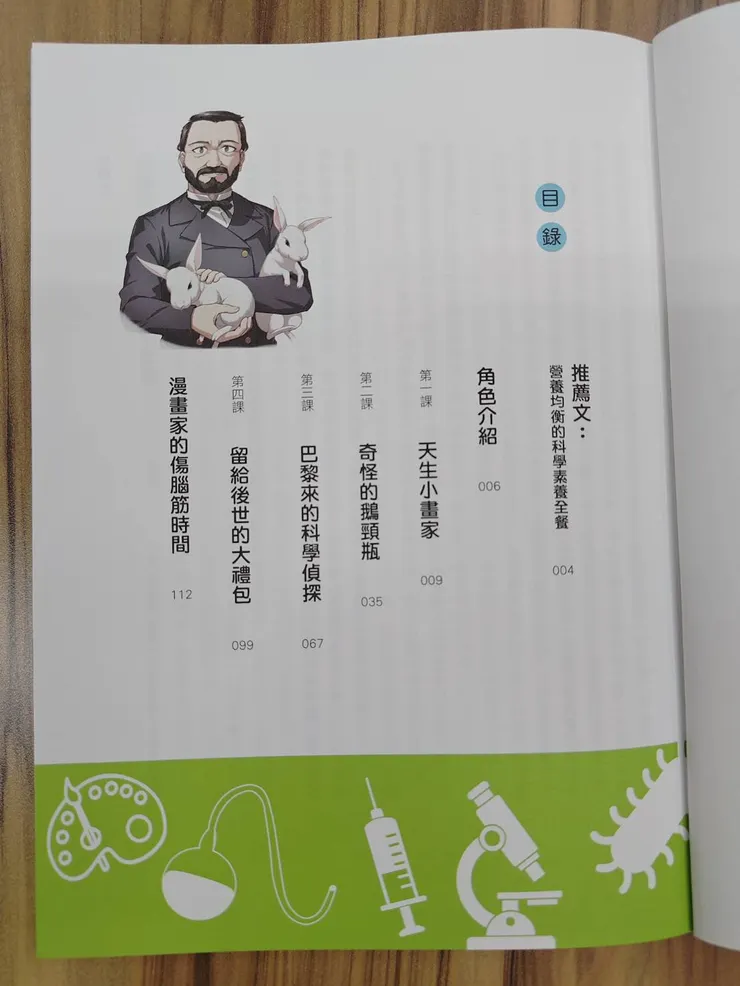 目錄
推薦文：
營養均衡的科學素養全餐
004
角色介紹
006
第一課
天生小畫家
009
第二課
奇怪的鵝頸瓶
035
第三課
巴黎來的科學偵探
067
第四課
留給後世的大禮包
099
漫畫家的傷腦筋時間
112